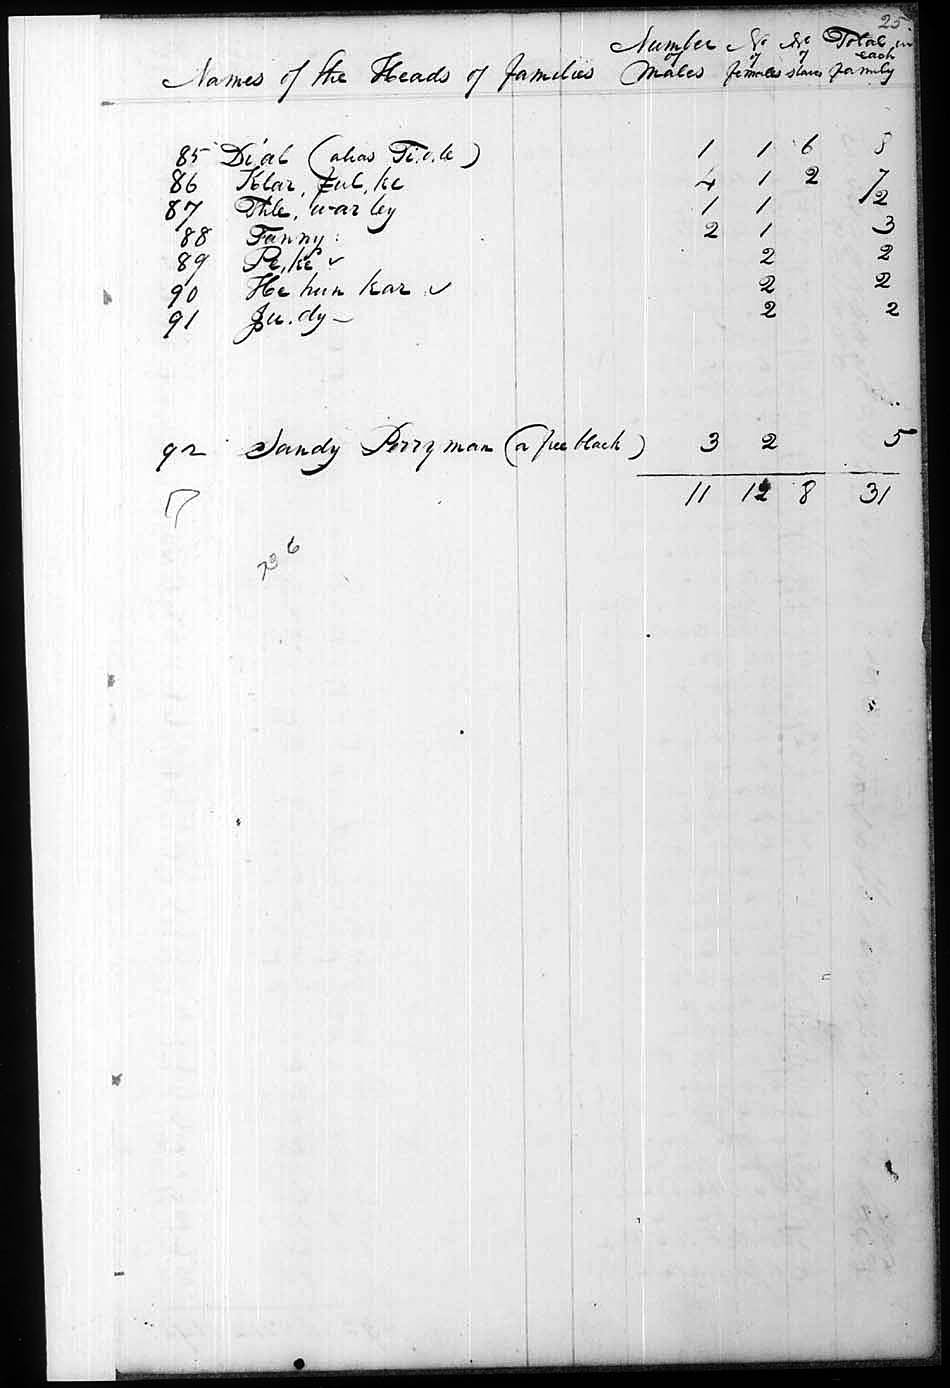 25
Names of the Heads of families Number of Males No of females No of slaves Total in each family
85 Dial (alias Ti.o.le) 1 1 6 8
86 Klar, ful, ke 4 1 2 7
87 Thle, war ley 1 1 2
88 Fanny: 2 1 3
89 Pe, ke 2 2
90 He hun kar 2 2
91 Ju. dy 2 2
92 Sandy Perryman (a free black) 3 2 5
11 12 8 31
17
736